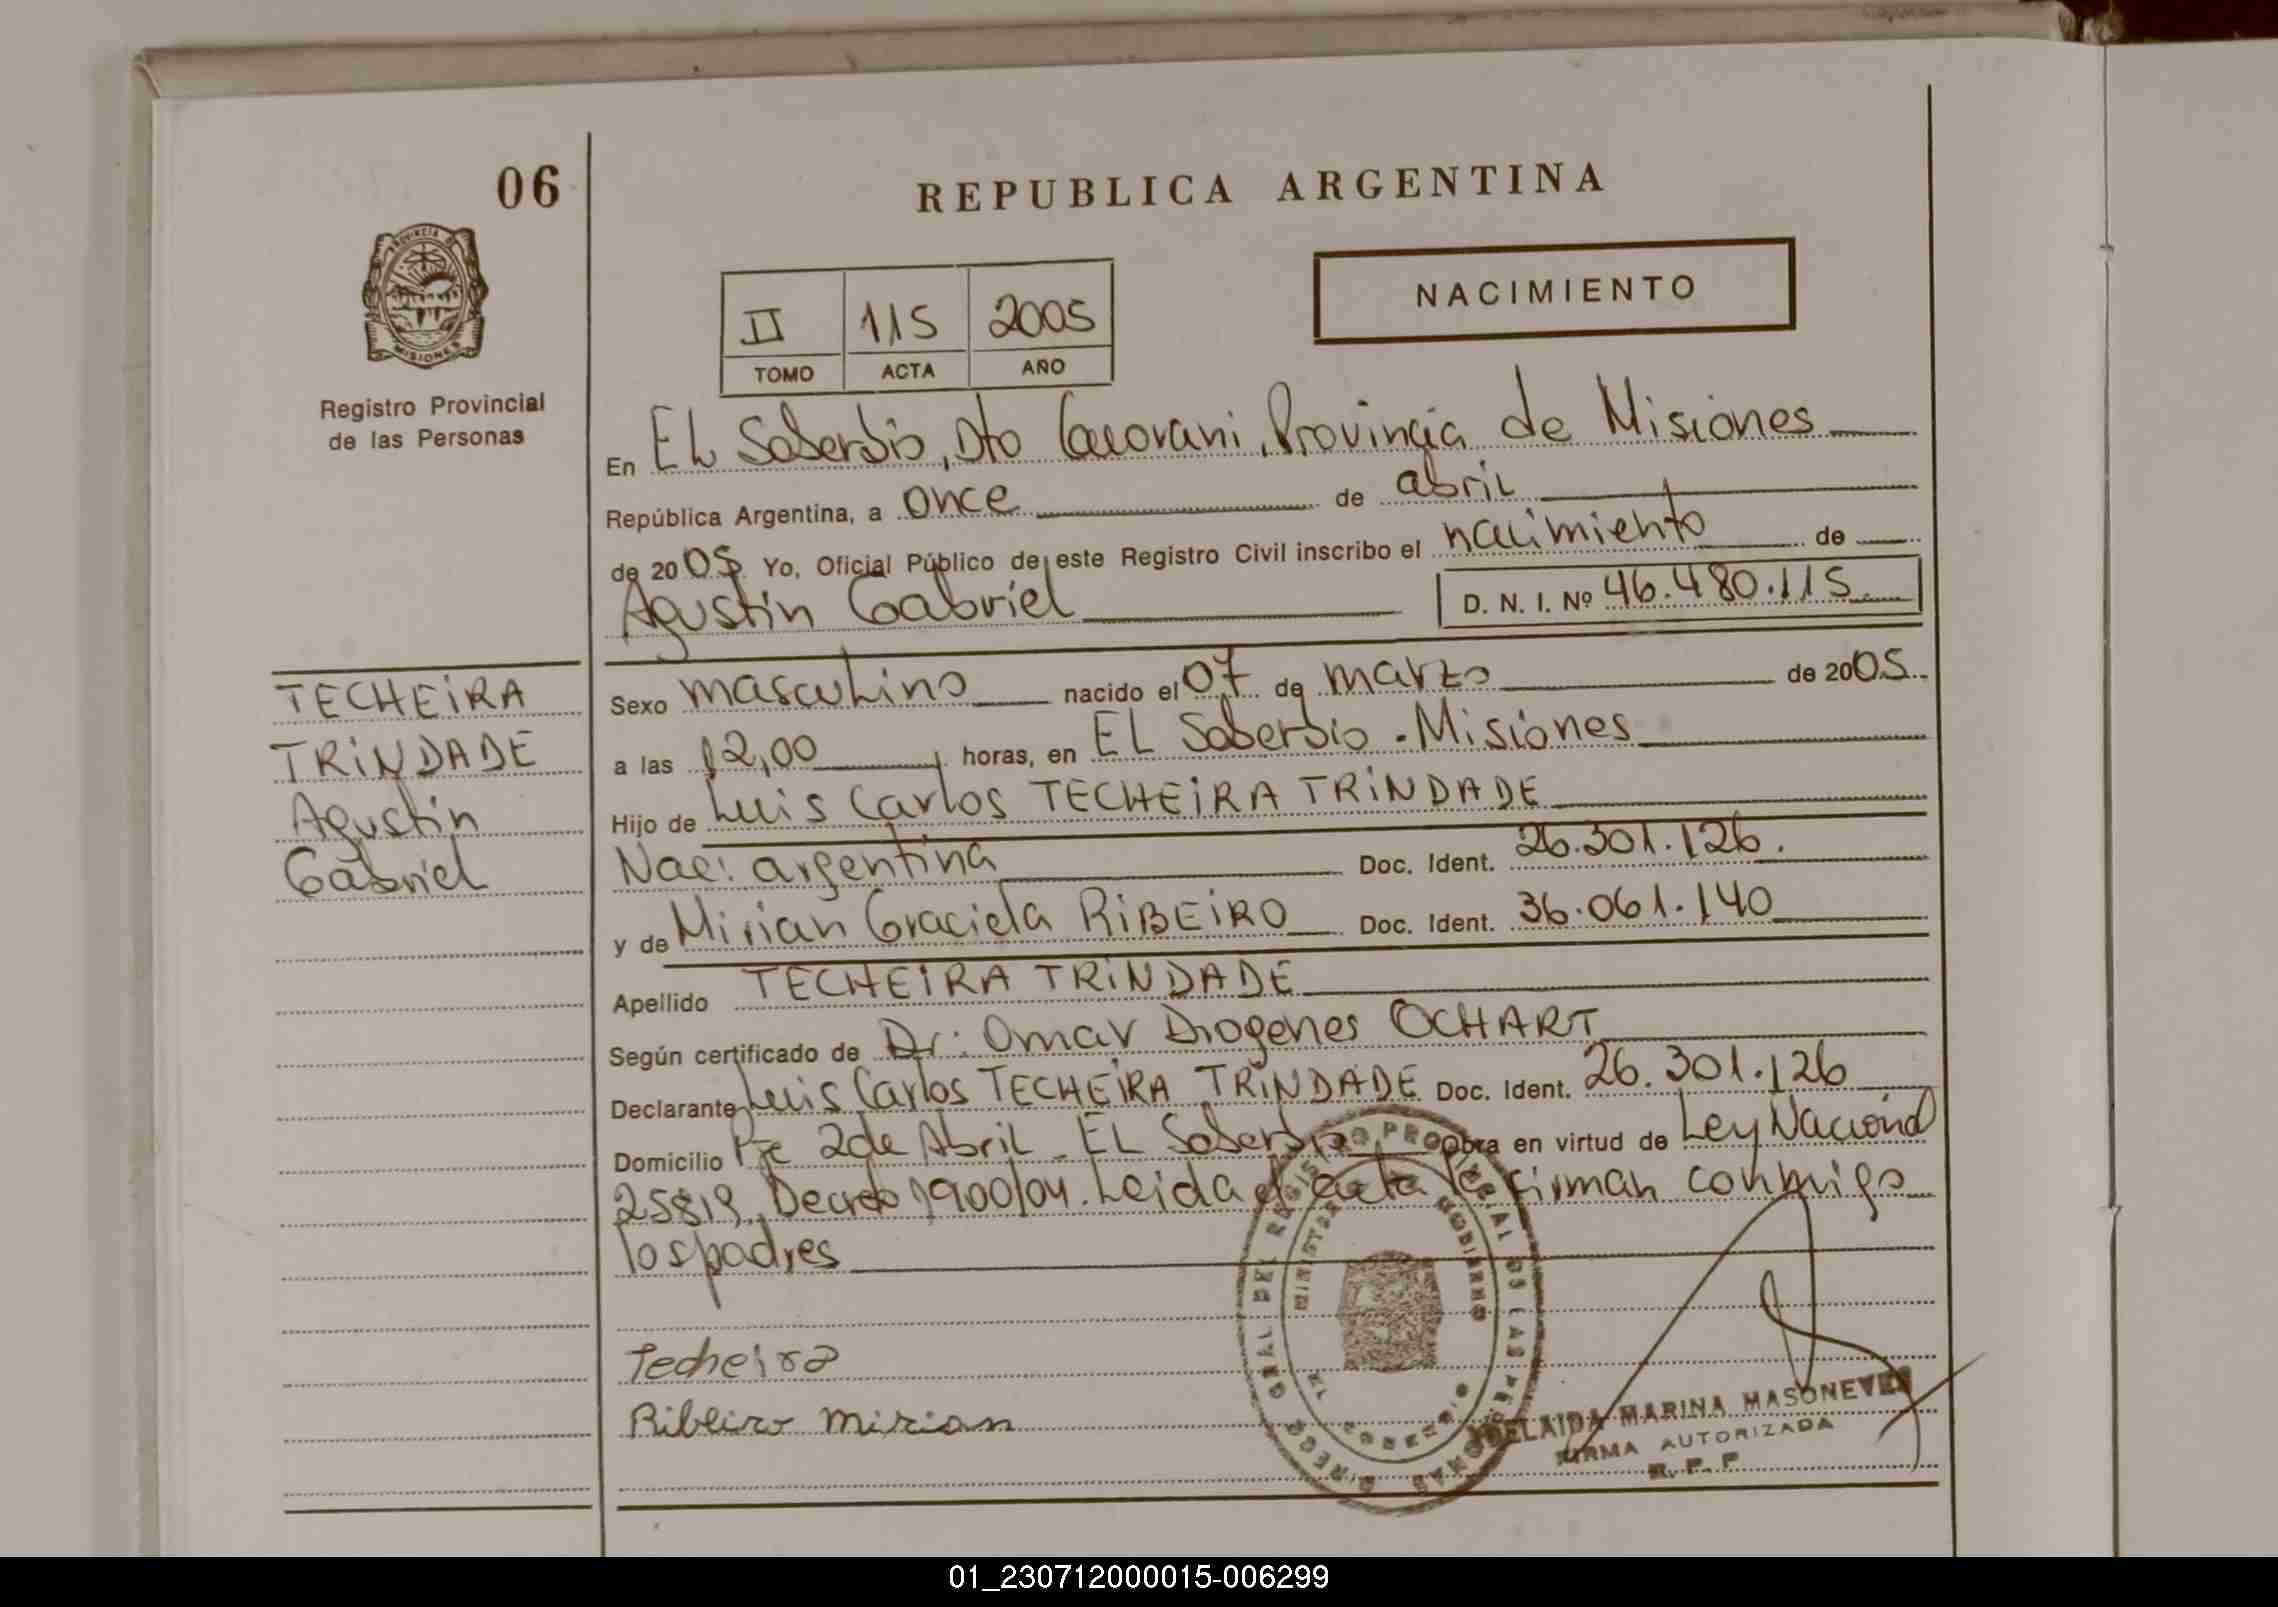 06
PROVINCIA DE
MISIONES
Registro Provincial
de las Personas
REPUBLICA ARGENTINA
NACIMIENTO
II 115 2005
TOMO ACTA AÑO
En EL Soberbio, Dto Guarani, Provincia de Misiones
República Argentina, a once de abril
de 2005 Yo, Oficial Público de este Registro Civil inscribo el nacimiento de
Agustin Gabriel D. N. I. Nº 46.480.115
TECHEIRA
TRINDADE
Agustin
Gabriel
Sexo masculino nacido el 07 de marzo de 2005
a las 12,00 horas, en EL Soberbio - Misiones
Hijo de Luis Carlos TECHEIRA TRINDADE
Nac: argentina Doc. Ident. 26.301.126.
y de Mirian Graciela RIBEIRO Doc. Ident. 36.061.140
Apellido TECHEIRA TRINDADE
Según certificado de Dr: Omar Diogenes OCHART
Declarante Luis Carlos TECHEIRA TRINDADE Doc. Ident. 26.301.126
Domicilio 2 de Abril - EL Soberbio Obra en virtud de Ley Nacional
25819, Decreto 1900/04. Leida el acta la firman conmigo
los padres
Techeira
Ribeiro Mirian
ADELAIDA MARINA MASONEVES
FIRMA AUTORIZADA
R. P. P
01_230712000015-006299